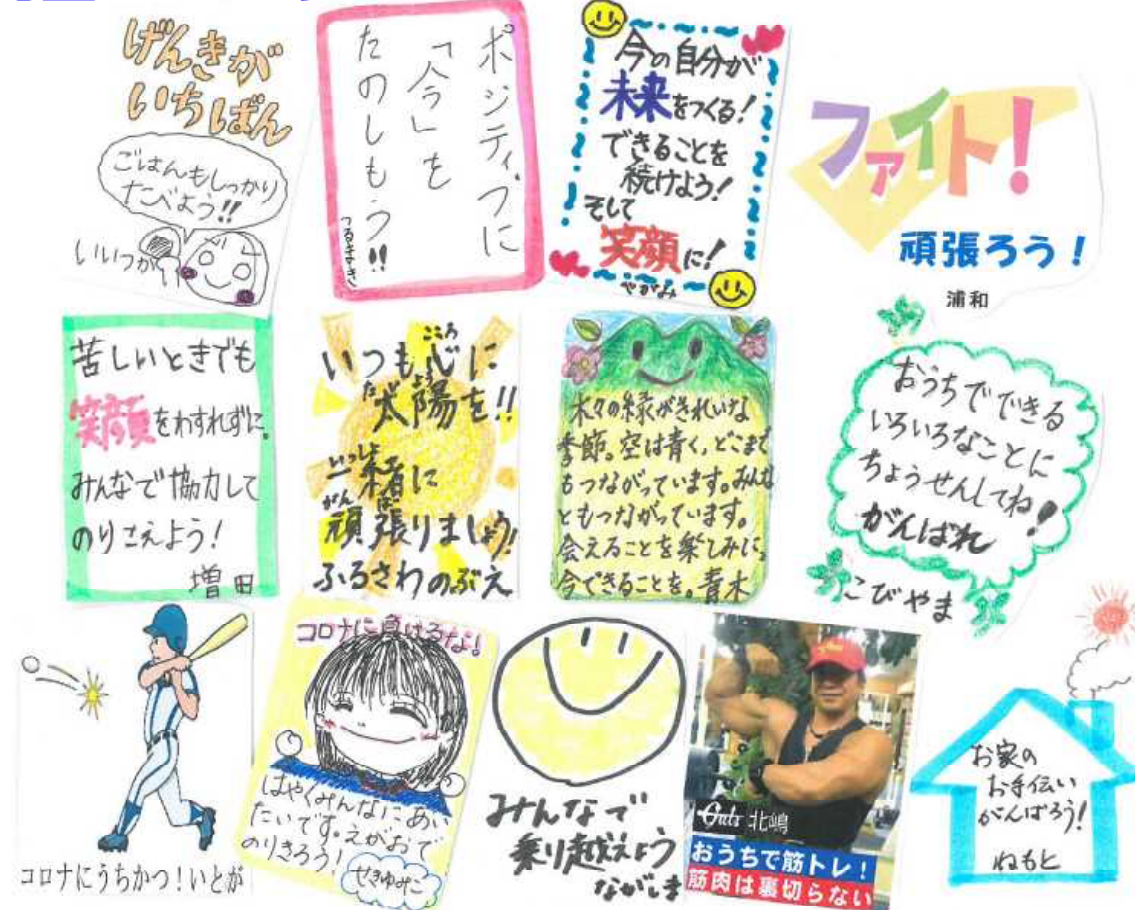 げんきが
いちばん
ごはんもしっかり
たべよう!!
いいづか
ポジティブに
「今」を
たのしもう!!
つるさきさき
今の自分が
未来をつくる!
できることを
続けよう!
そして
笑顔に!
やがみ
ファイト!
頑張ろう!
浦和
苦しいときでも
笑顔をわすれずに。
みんなで協力して
のりこえよう!
増田
いつも心に
こころ
太陽を!!
たいよう
一緒に
いっしょ
頑張りましょう!
がんば
ふるさわのぶえ
木々の緑がきれいな
季節。空は青く、どこまで
もつながっています。みんな
ともつながっています。
会えることを楽しみに。
今できることを。青木
おうちでできる
いろいろなことに
ちょうせんしてね!
がんばれ
こびやま
コロナにうちかつ!いとが
コロナに負けるな!
はやくみんなにあい
たいです。えがおで
のりきろう!
せきゆみこ
みんなで
乗り越えよう
ながしま
Guts 北嶋
おうちで筋トレ!
筋肉は裏切らない
お家の
お手伝い
がんばろう!
ねもと